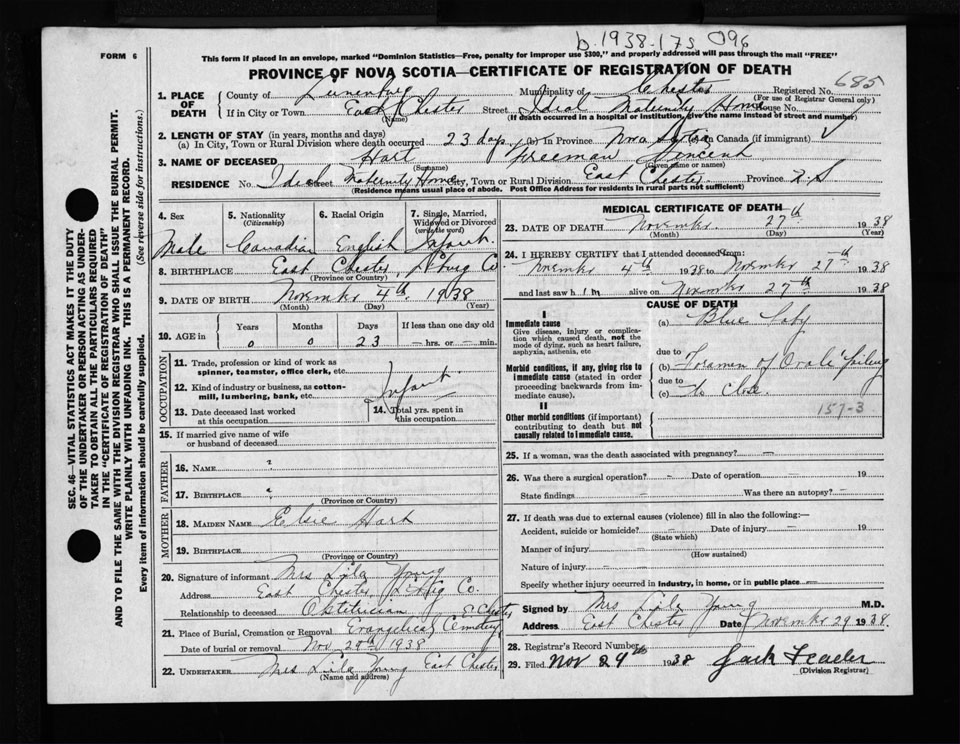 b.1938-173 096
FORM 6
This form if placed in an envelope, marked "Dominion Statistics—Free, penalty for improper use $300," and properly addressed will pass through the mail "FREE"
PROVINCE OF NOVA SCOTIA—CERTIFICATE OF REGISTRATION OF DEATH
685
1. PLACE OF DEATH County of Lunenburg Municipality of Chester Registered No.
(For use of Registrar General only)
If in City or Town East Chester Street Ideal Maternity Home House No.
(Name) (If death occurred in a hospital or institution, give the name instead of street and number)
2. LENGTH OF STAY (in years, months and days)
(a) In City, Town or Rural Division where death occurred 23 days (b) in Province Nova Scotia (c) in Canada (if immigrant)
3. NAME OF DECEASED Hart Freeman Vincent
(Surname) (Given name or names)
RESIDENCE No. Ideal Street Maternity Home City, Town or Rural Division East Chester Province N.S
(Residence means usual place of abode. Post Office Address for residents in rural parts not sufficient)
4. Sex Male
5. Nationality (Citizenship) Canadian
6. Racial Origin English
7. Single, Married, Widowed or Divorced (write the word) Infant
8. BIRTHPLACE East Chester, Co.
(Province or Country)
9. DATE OF BIRTH November 4th 1938
(Month) (Day) (Year)
10. AGE in Years Months Days If less than one day old
0 0 23 — hrs. or — min.
OCCUPATION
11. Trade, profession or kind of work as spinner, teamster, office clerk, etc.
12. Kind of industry or business, as cotton-mill, lumbering, bank, etc. Infant
13. Date deceased last worked at this occupation
14. Total yrs. spent in this occupation
15. If married give name of wife or husband of deceased
FATHER
16. NAME
17. BIRTHPLACE
(Province or Country)
MOTHER
18. MAIDEN NAME Elsie Hart
19. BIRTHPLACE
(Province or Country)
20. Signature of informant Mrs Lila Young
Address East Chester, Co.
Relationship to deceased Obstetrician
E. Chester
21. Place of Burial, Cremation or Removal Evangelical Cemetery
Date of burial or removal Nov 29th 1938
22. UNDERTAKER Mrs Lila Young East Chester
(Name and address)
MEDICAL CERTIFICATE OF DEATH
23. DATE OF DEATH November 27th 1938
(Month) (Day) (Year)
24. I HEREBY CERTIFY that I attended deceased from:
November 4th 1938 to November 27th 1938
and last saw him alive on November 27th 1938
CAUSE OF DEATH
I
Immediate cause
Give disease, injury or complication which caused death, not the mode of dying, such as heart failure, asphyxia, asthenia, etc
(a) Blue baby
due to
Morbid conditions, if any, giving rise to immediate cause (stated in order proceeding backwards from immediate cause).
(b) Foramen of Ovale failing
due to
(c) to Close
157-3
II
Other morbid conditions (if important) contributing to death but not causally related to immediate cause.
25. If a woman, was the death associated with pregnancy? —
26. Was there a surgical operation? — Date of operation — 19
State findings Was there an autopsy? —
27. If death was due to external causes (violence) fill in also the following:—
Accident, suicide or homicide? — Date of injury — 19
(State which)
Manner of injury —
(How sustained)
Nature of injury —
Specify whether injury occurred in industry, in home, or in public place —
Signed by Mrs Lila Young M.D.
Address East Chester Date November 29 1938.
28. Registrar's Record Number
29. Filed Nov 29th 1938 Jack Leader
(Division Registrar)
SEC. 46—VITAL STATISTICS ACT MAKES IT THE DUTY
OF THE UNDERTAKER OR PERSON ACTING AS UNDER-
TAKER TO OBTAIN ALL THE PARTICULARS REQUIRED
IN THE "CERTIFICATE OF REGISTRATION OF DEATH"
AND TO FILE THE SAME WITH THE DIVISION REGISTRAR WHO SHALL ISSUE THE BURIAL PERMIT.
WRITE PLAINLY WITH UNFADING INK. THIS IS A PERMANENT RECORD.
Every item of information should be carefully supplied. (See reverse side for instructions.)